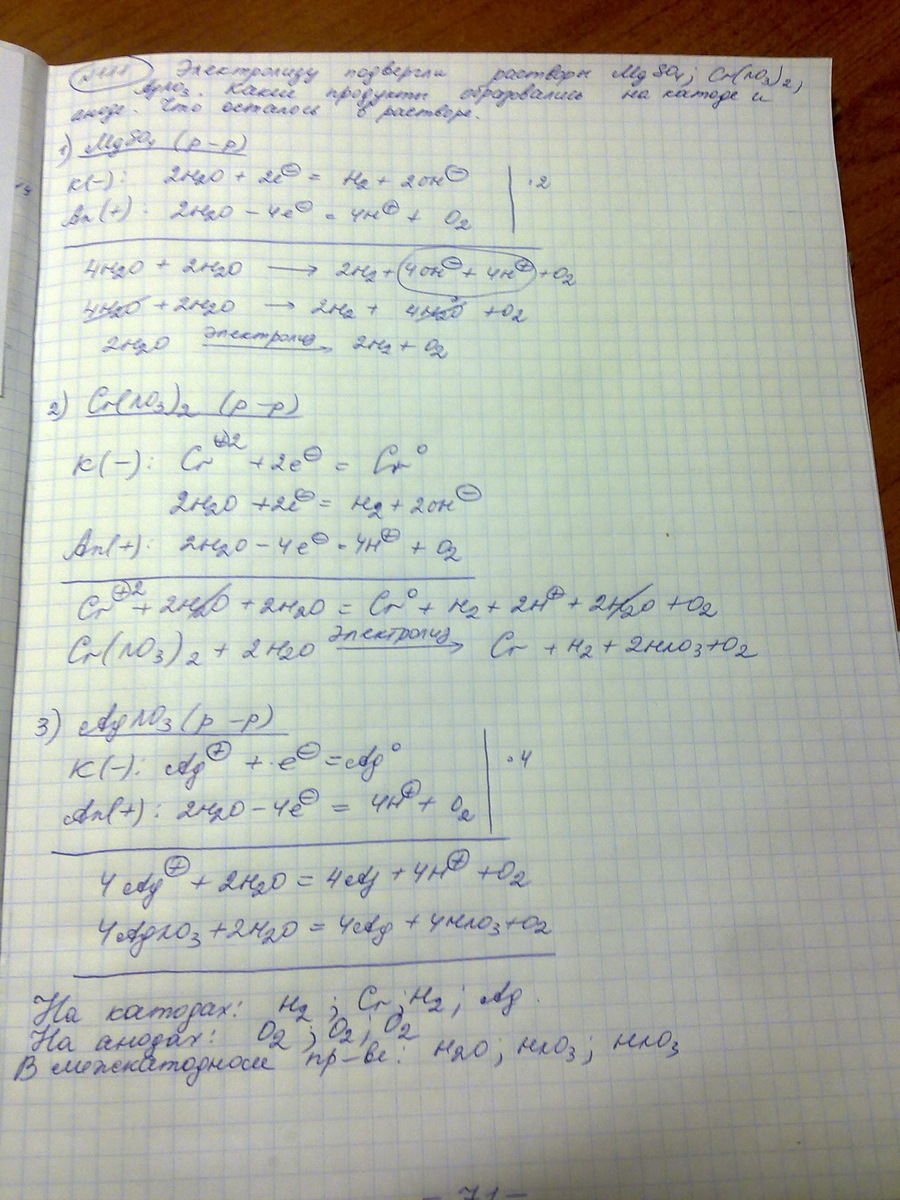 Электролизу подвергли растворы MgSO₄; Cr(NO₃)₂;
AgNO₃. Какие продукты образовались на катоде и
аноде. Что осталось в растворе.
1) MgSO₄ (р-р)
К(-): 2H₂O + 2e⊖ = H₂ + 2OH⊖ | ·2
An(+): 2H₂O - 4e⊖ = 4H⊕ + O₂
4H₂O + 2H₂O → 2H₂ + 4OH⊖ + 4H⊕ + O₂
4H₂O + 2H₂O → 2H₂ + 4H₂O + O₂
2H₂O электролиз → 2H₂ + O₂
2) Cr(NO₃)₂ (р-р)
К(-): Cr⁺² + 2e⊖ = Cr⁰
2H₂O + 2e⊖ = H₂ + 2OH⊖
An(+): 2H₂O - 4e⊖ = 4H⊕ + O₂
Cr⁺² + 2H₂O + 2H₂O = Cr⁰ + H₂ + 2H⊕ + 2H₂O + O₂
Cr(NO₃)₂ + 2H₂O электролиз → Cr + H₂ + 2HNO₃ + O₂
3) AgNO₃ (р-р)
К(-): Ag⊕ + e⊖ = Ag⁰ | ·4
An(+): 2H₂O - 4e⊖ = 4H⊕ + O₂
4Ag⊕ + 2H₂O = 4Ag + 4H⊕ + O₂
4AgNO₃ + 2H₂O = 4Ag + 4HNO₃ + O₂
На катодах: H₂; Cr; H₂; Ag.
На анодах: O₂; O₂; O₂
В межкатодном пр-ве: H₂O; HNO₃; HNO₃
- 71 -